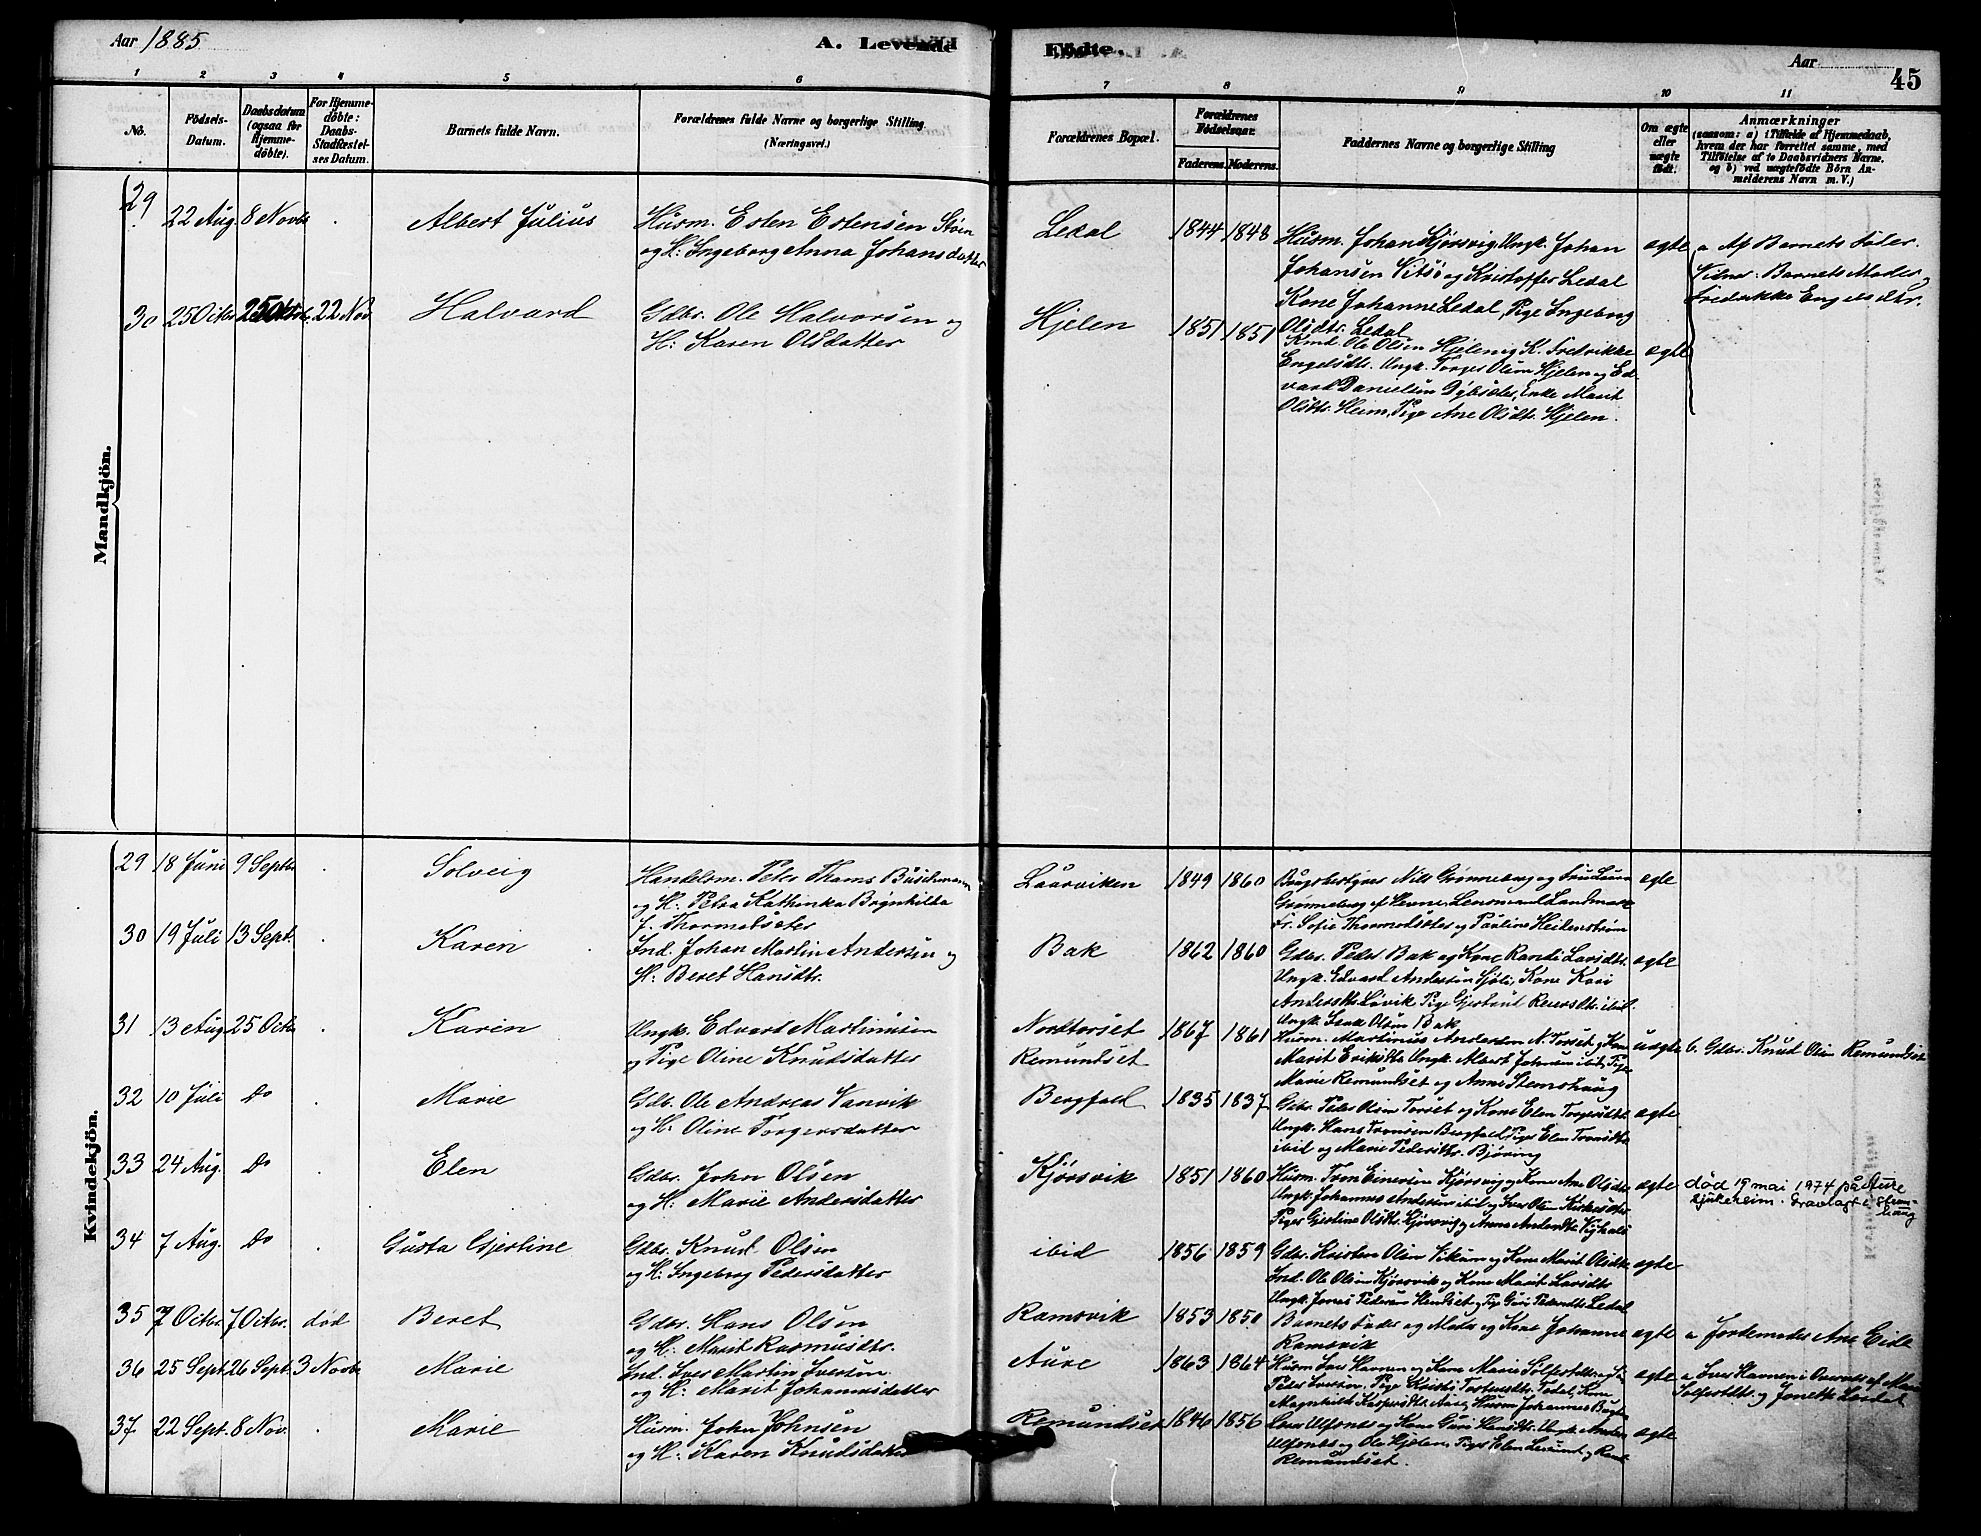 Aar 1885.
A. Levende
Födte.
Aar
45
1 2 3 4 5 6 7 8 9 10 11
No.
Födsels-
Datum.
Daabsdatum
(ogsaa for
Hjemme-
döbte).
For Hjemme-
döbte:
Daabs-
Stadfæstel-
ses Datum.
Barnets fulde Navn.
Forældrenes fulde Navne og borgerlige Stilling.
(Næringsvei.)
Forældrenes Bopæl.
Forældrenes
Födselsaar.
Faderens. Moderens.
Faddernes Navne og borgerlige Stilling
Om ægte
eller
uægte
födt.
Anmærkninger
(saasom: a) i Tilfælde af Hjemmedaab,
hvem der har forrettet samme, med
Tilföielse af to Daabsvidners Navne.
og b) ved uægtefödte Börn An-
melderens Navn m. V.)
Mandkjön.
29 22 Aug. 8 Novb. Albert Julius
Husm. Esten Estensen Støen
og H: Ingeborg Anna Johansdatter
Ledal 1844 1848
Husm. Johan Kjørsvig, Ungk. Johan
Johansen Vitsö og Kristoffer Ledal
Kone Johanne Ledal, Pige Ingeborg
Olsdtr. Ledal
ægte
a Af Barnets Fader.
Vidner: Barnets Moder,
Fredrikke Engelsdtr.
30 25 Octbr. 25 Octbr. 22 Nov. Halvard
Gdbr. Ole Halvorsen og
H: Karen Olsdatter
Hjelen 1851 1851
Kmd. Ole Olsen Hjelen og K. Fredrikke
Engelsdtr. Ungk. Torger Olsen Hjelen og Ed-
vard Danielsen Dybsæter, Enke Marit
Olsdtr. Heim, Pige Ane Olsdtr. Hjelen.
ægte
Kvindekjön.
29 18 Juni 9 Septbr. Solveig
Handelsm. Peter Thams Buschmann
og H. Petra Kathinka Brynhilda
f. Thormodsæter
Laurviken 1849 1860
Brugsbestyrer Nils Grønneberg og Fru Laura
Grønneberg af Hevne, Lensmand Landmark
Fr. Sofie Thormodsæter og Pauline Heidenstrøm
ægte
30 19 Juli 13 Sept. Karen
Ind. Johan Martin Andersen og
H: Beret Hansdtr.
Bak 1862 1860
Gdbr. Peder Bak og Kone Randi Larsdtr.
Ungk. Edvard Andersen Sjöli, Kone Kari
Andersdtr. Løvik, Pige Gjertrud Reiersdtr. ibid.
Ungk. Isak Olsen Bak
ægte
31 13 Aug. 25 Octbr. Karen
Ungk. Edvard Martinusen
og Pige Oline Knudsdatter
Nordtorset
Remundset
1867 1861
Husm. Martinus Andersen N. Torset og Kone
Marit Eriksdtr. Ungk. Albert Johnsen ibid, Pige
Marie Remundset og Anne Stemshaug
uægte
b. Gdbr. Knud Olsen Remundset
32 10 Juli Do Marie
Gdb. Ole Andreas Vanvik
og H: Oline Torgersdatter
Bergfald 1835 1837
Gdbr. Peder Olsen Torset og Kone Elen Torgersdtr.
Ungk. Hans Tronsen Bergfald, Pige Elen Tronsdtr.
ibid og Marie Pedersdtr. Bjøring
ægte
33 24 Aug. Do Elen
Gdbr. John Olsen
og H: Marie Andersdatter
Kjørsvik 1851 1860
Husm. Tron Einersen Kjørsvig og Kone Ane Olsdtr.
Ungk. Johannes Andersen ibid og Iver Olsen Kirkesæter
Piger Gjertine Olsdtr. Kjørsvig og Anne Andersdtr.
ægte
død 19 mai 1974 på Aure
sjukeheim. Gravlagt i Stems-
haug
34 7 Aug. Do Gusta Gjertine
Gdbr. Knud Olsen
og H: Ingebrog Pedersdatter
ibid 1856 1859
Gdbr. Kristen Olsen Vikan og Kone Marit Olsdtr.
Ind. Ole Olsen Kjørsvik og Kone Marit Larsdtr.
Ungk. Jonas Pedersen Hendset og Pige Guri Pedersdtr. Ledal
ægte
35 7 Octbr. 7 Octbr. død Beret
Gdbr. Hans Olsen
og H: Marit Rasmusdtr.
Ramsvik 1853 1850
Barnets Fader og Moder og Kone Johanna
Ramsvik
ægte
a Jordemoder Ane Eide
36 25 Sept. 26 Sept. 3 Novbr. Marie
Ind. Iver Martin Iversen
og H: Marit Johannesdatter
Aure 1863 1864
Husm. Iver Havnen og Kone Marie Solfestdtr. og
Peder Iversen, Pige Kristi Tostensdtr. Todal, Kone
Magnhild Kaspersdtr. Aure, Husm. Johannes
ægte
a Iver Havnen i Overvær af Marie
Solfestdtr. og Jonetta
37 22 Sept. 8 Nov. Marie
Husm. John Johnsen
og H: Karen Knudsdatter
Remundset 1846 1856
Lars Ulfsnes og Kone Guri Hansdtr. Ungk. Anders
Ulfsnes og Ole Hjelen, Piger Elen
Remundset.
ægte